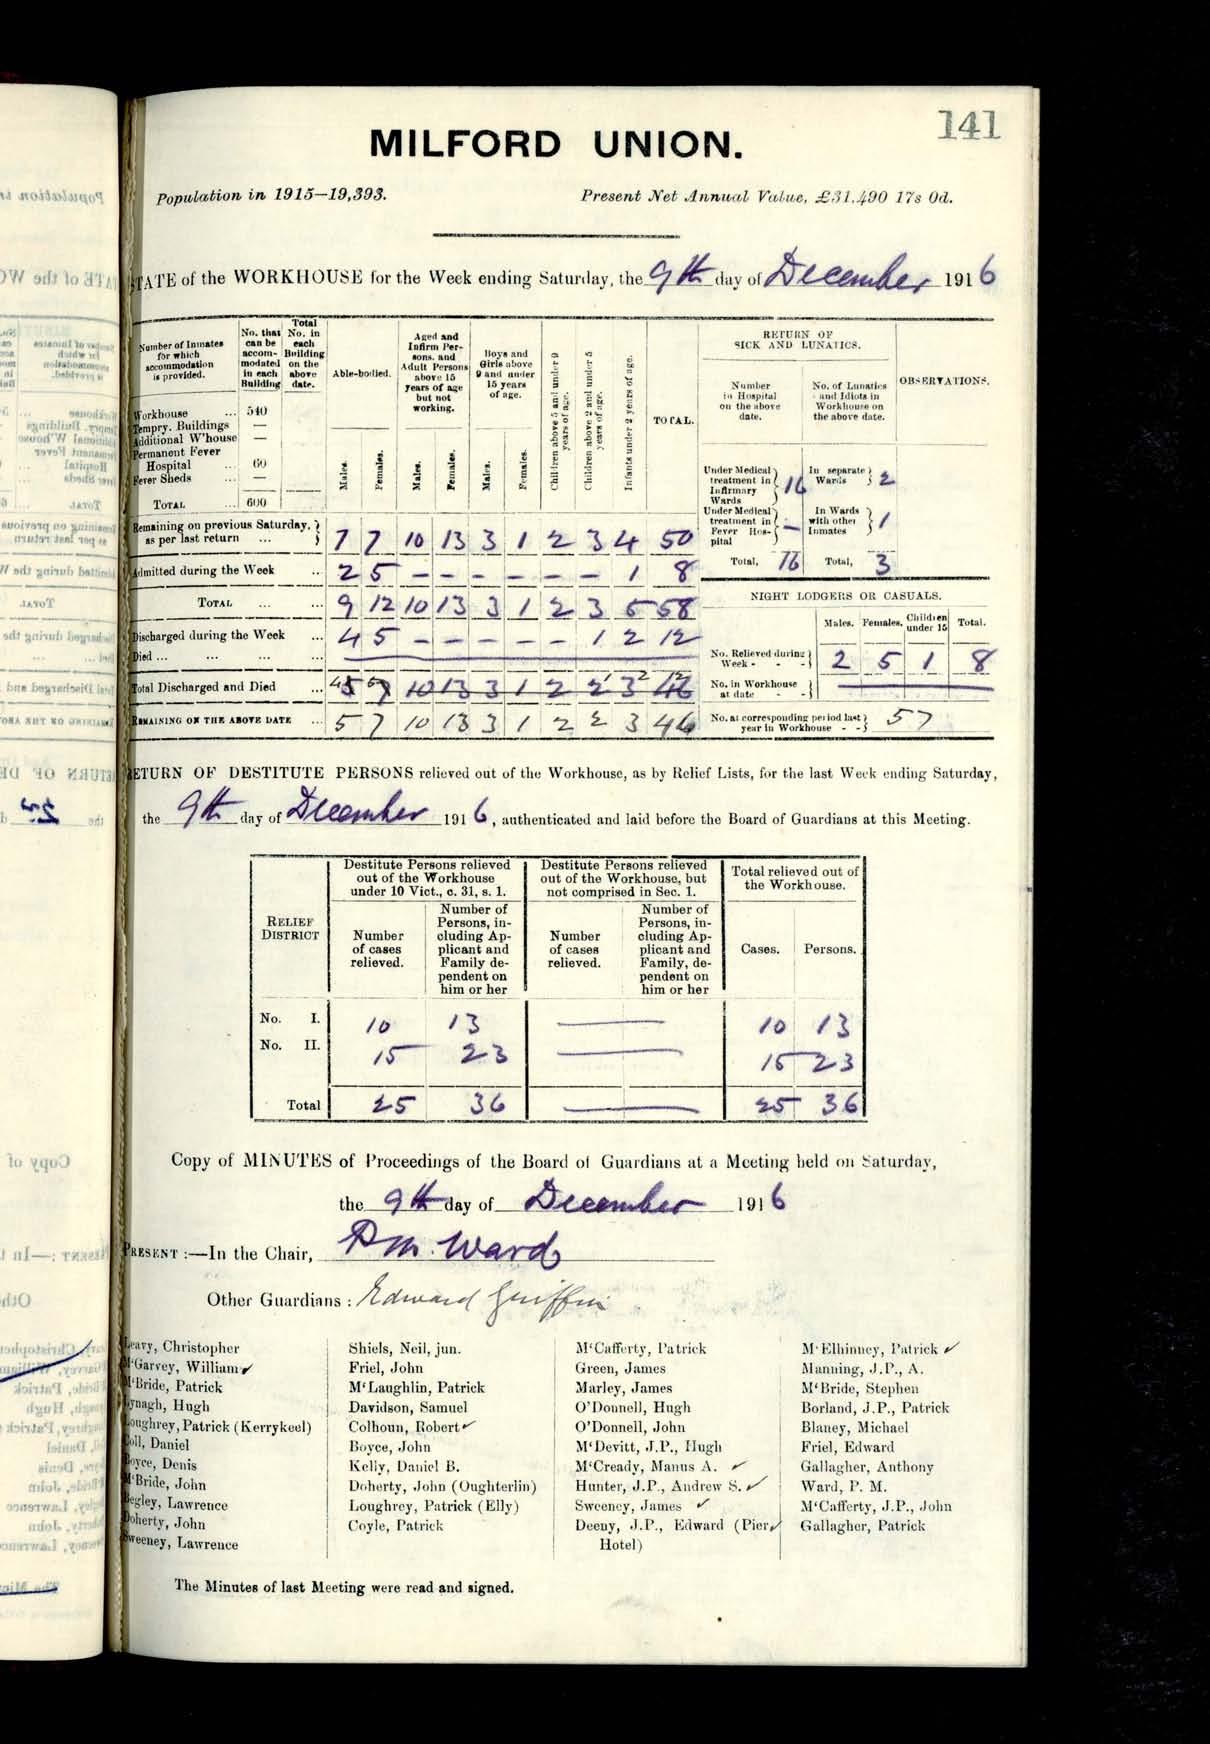 141
MILFORD UNION.
Population in 1915—19,393. Present Net Annual Value, £31,490 17s 0d.
STATE of the WORKHOUSE for the Week ending Saturday, the 9th day of December 1916
Number of Inmates for which accommodation is provided. No. that can be accommodated in each Building Total No. in each Building on the above date.
Able-bodied. Males. Females.
Aged and Infirm Persons, and Adult Persons above 15 years of age but not working. Males. Females.
Boys and Girls above 9 and under 15 years of age. Males. Females.
Children above 5 and under 9 years of age.
Children above 2 and under 5 years of age.
Infants under 2 years of age.
TOTAL.
RETURN OF SICK AND LUNATICS.
Number in Hospital on the above date. No. of Lunatics and Idiots in Workhouse on the above date.
OBSERVATIONS.
Workhouse ... 540
Tempry. Buildings —
Additional W'house —
Permanent Fever Hospital ... 60
Fever Sheds ... —
TOTAL ... 600
Under Medical treatment in Infirmary Wards 16 In separate Wards 2
Under Medical treatment in Fever Hospital — In Wards with other Inmates 1
Total, 16 Total, 3
Remaining on previous Saturday, as per last return ... 7 7 10 13 3 1 2 3 4 50
Admitted during the Week ... 2 5 – – – – – – 1 8
TOTAL ... ... 9 12 10 13 3 1 2 3 5 58
Discharged during the Week ... 4 5 – – – – – 1 2 12
Died ... ... ... ...
Total Discharged and Died ... 4 5 5 7 10 13 3 1 2 2 1 3 2 46 12
REMAINING ON THE ABOVE DATE ... 5 7 10 13 3 1 2 2 3 46
NIGHT LODGERS OR CASUALS.
Males. Females. Children under 15 Total.
No. Relieved during Week - - - 2 5 1 8
No. in Workhouse at date - -
No. at corresponding period last year in Workhouse - - 57
RETURN OF DESTITUTE PERSONS relieved out of the Workhouse, as by Relief Lists, for the last Week ending Saturday,
the 9th day of December 1916, authenticated and laid before the Board of Guardians at this Meeting.
RELIEF DISTRICT
Destitute Persons relieved out of the Workhouse under 10 Vict., c. 31, s. 1.
Destitute Persons relieved out of the Workhouse, but not comprised in Sec. 1.
Total relieved out of the Workhouse.
Number of cases relieved. Number of Persons, including Applicant and Family dependent on him or her
Number of cases relieved. Number of Persons, including Applicant and Family, dependent on him or her
Cases. Persons.
No. I. 10 13 — 10 13
No. II. 15 23 — 15 23
Total 25 36 — 25 36
Copy of MINUTES of Proceedings of the Board of Guardians at a Meeting held on Saturday,
the 9th day of December 1916
PRESENT :—In the Chair, P M. Ward
Other Guardians : Edward Griffin
Leavy, Christopher
M'Garvey, William ✓
M'Bride, Patrick
Lynagh, Hugh
Loughrey, Patrick (Kerrykeel)
Coll, Daniel
Boyce, Denis
M'Bride, John
Begley, Lawrence
Doherty, John
Sweeney, Lawrence
Shiels, Neil, jun.
Friel, John
M'Laughlin, Patrick
Davidson, Samuel
Colhoun, Robert ✓
Boyce, John
Kelly, Daniel B.
Doherty, John (Oughterlin)
Loughrey, Patrick (Elly)
Coyle, Patrick
M'Cafferty, Patrick
Green, James
Marley, James
O'Donnell, Hugh
O'Donnell, John
M'Devitt, J.P., Hugh
M'Cready, Manus A. ✓
Hunter, J.P., Andrew S. ✓
Sweeney, James ✓
Deeny, J.P., Edward (Pier ✓
Hotel)
M'Elhinney, Patrick ✓
Manning, J.P., A.
M'Bride, Stephen
Borland, J.P., Patrick
Blaney, Michael
Friel, Edward
Gallagher, Anthony
Ward, P. M.
M'Cafferty, J.P., John
Gallagher, Patrick
The Minutes of last Meeting were read and signed.